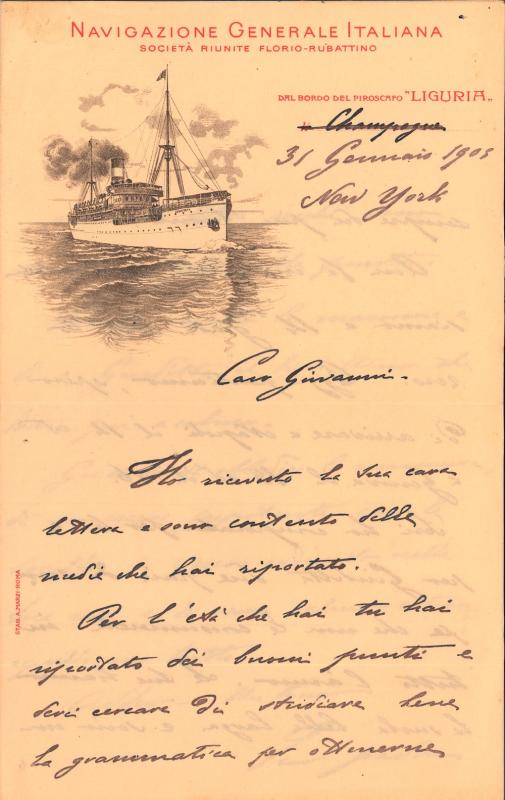 NAVIGAZIONE GENERALE ITALIANA
SOCIETÀ RIUNITE FLORIO-RUBATTINO
DAL BORDO DEL PIROSCAFO "LIGURIA"
Champagne
31 Gennaio 1905
New York
Caro Giovanni.
Ho ricevuto la sua cara
lettera e sono contento delle
medie che hai riportato.
Per l'età che hai tu hai
riportato dei buoni punti e
devi cercare di studiare bene
la grammatica per ottenerne
STAB. A. MARZI - ROMA